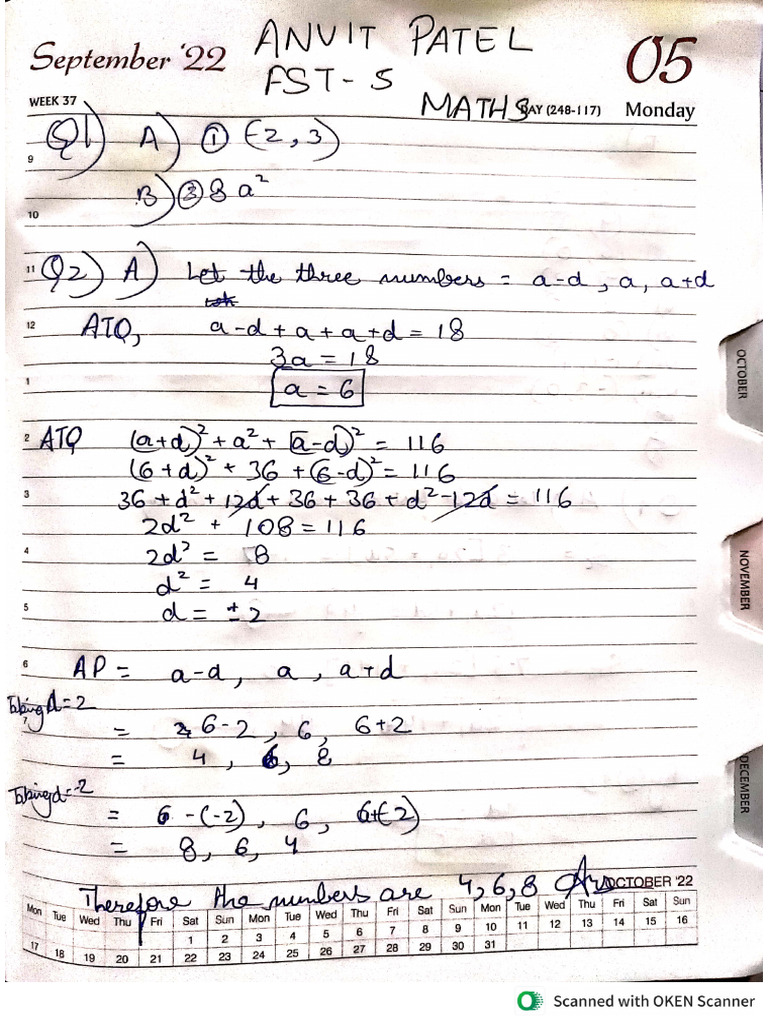 September '22
ANVIT PATEL
FST-5
05
WEEK 37
MATHS
DAY (248-117)
Monday
Q1) A) ① (-2, 3)
9
B) ③ 8 a²
10
11 Q2) A) Let the three numbers = a-d, a, a+d
12 ATQ, a-d+a+a+d = 18
3a = 18
1 a = 6
2 ATQ (a+d)² + a² + (a-d)² = 116
(6+d)² + 36 + (6-d)² = 116
3 36 + d² + 12d + 36 + 36 + d² - 12d = 116
2d² + 108 = 116
4 2d² = 8
d² = 4
5 d = ± 2
6 AP = a-d, a, a+d
Taking d=2
7
= 6-2, 6, 6+2
= 4, 6, 8
Taking d=-2
= 6-(-2), 6, 6+(-2)
= 8, 6, 4
Therefore the numbers are 4, 6, 8 Ans
OCTOBER '22
Mon Tue Wed Thu Fri Sat Sun Mon Tue Wed Thu Fri Sat Sun Mon Tue Wed Thu Fri Sat Sun
1 2 3 4 5 6 7 8 9 10 11 12 13 14 15 16
17 18 19 20 21 22 23 24 25 26 27 28 29 30 31
OCTOBER
NOVEMBER
DECEMBER
Scanned with OKEN Scanner